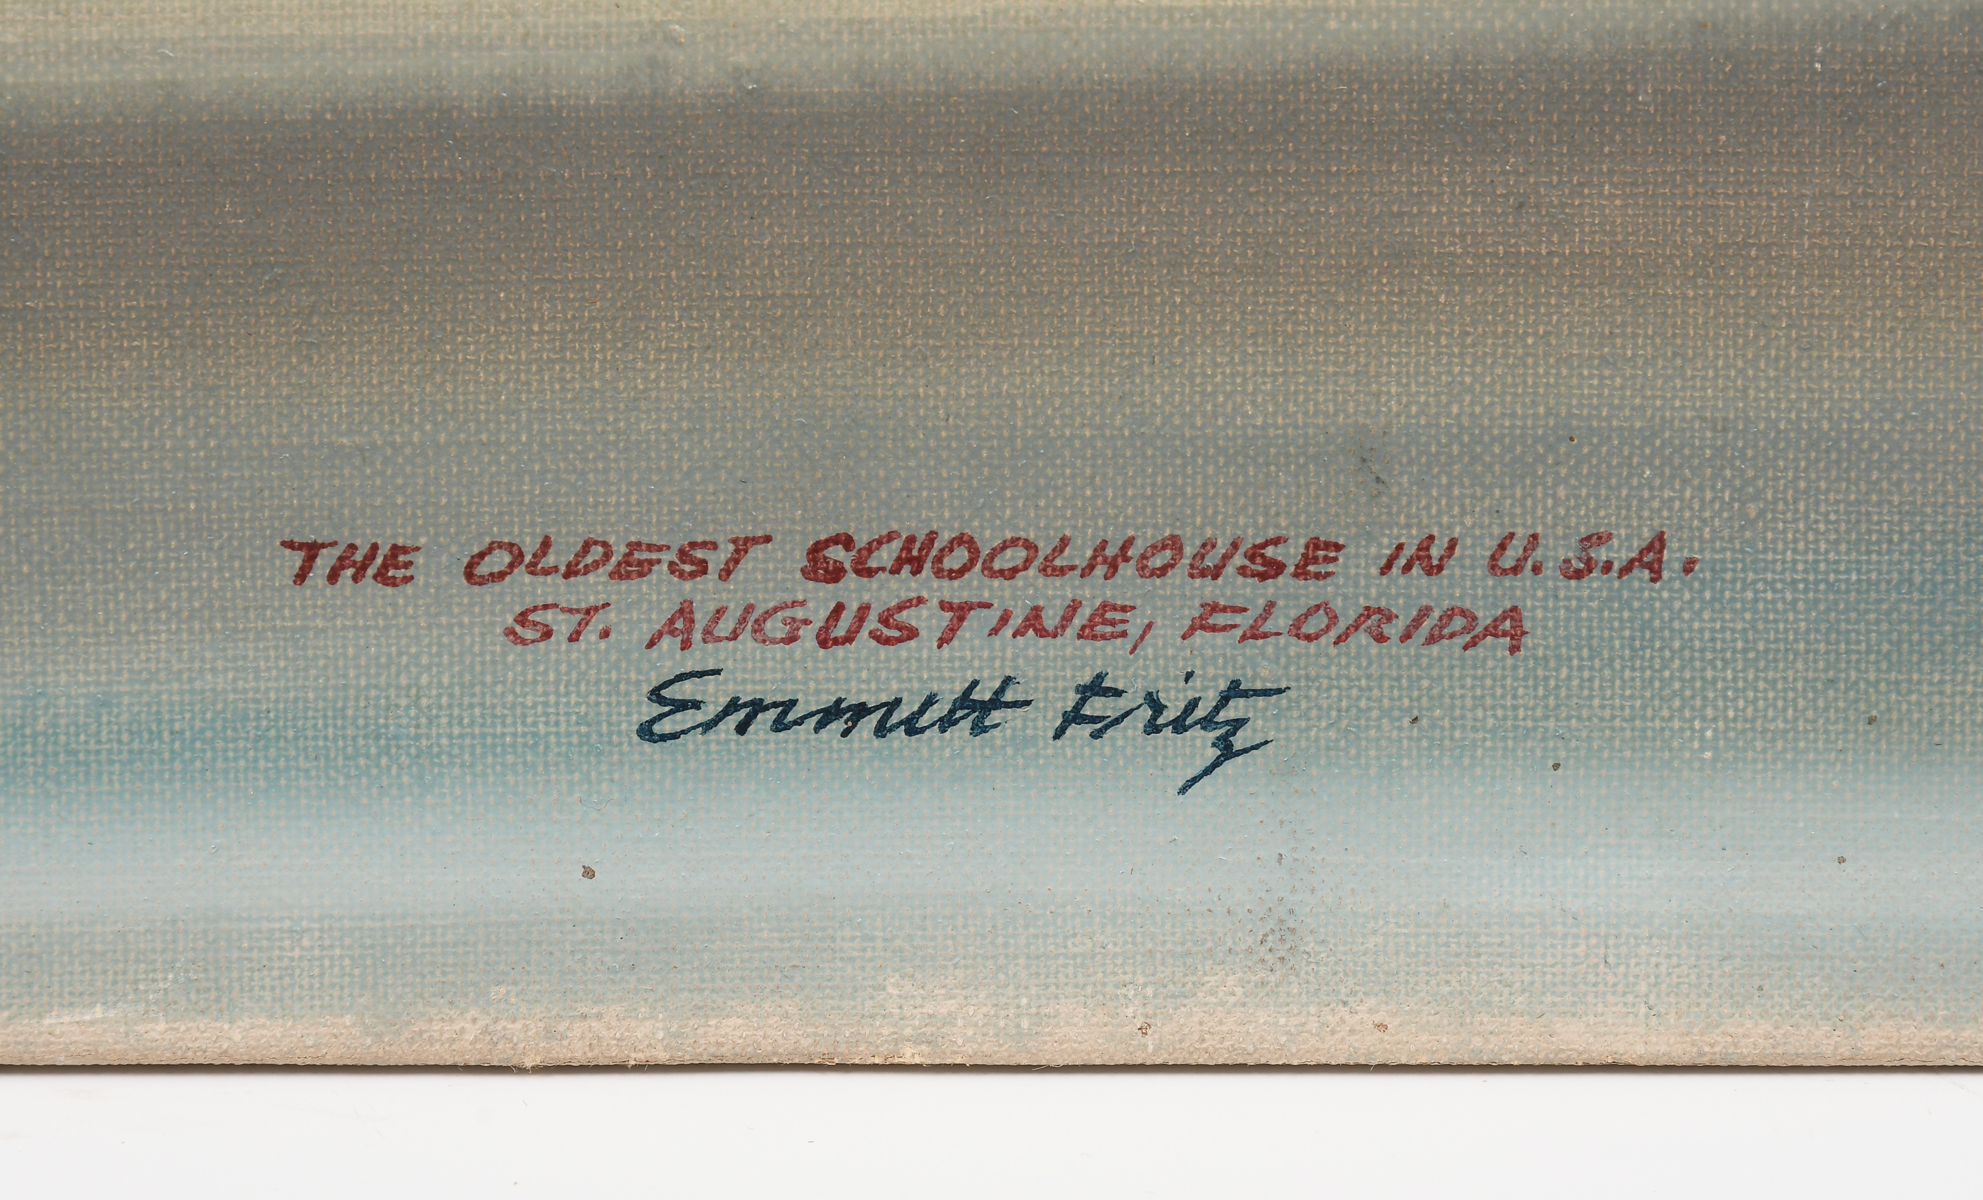 THE OLDEST SCHOOLHOUSE IN U.S.A.
ST. AUGUSTINE, FLORIDA
Emmett Fritz